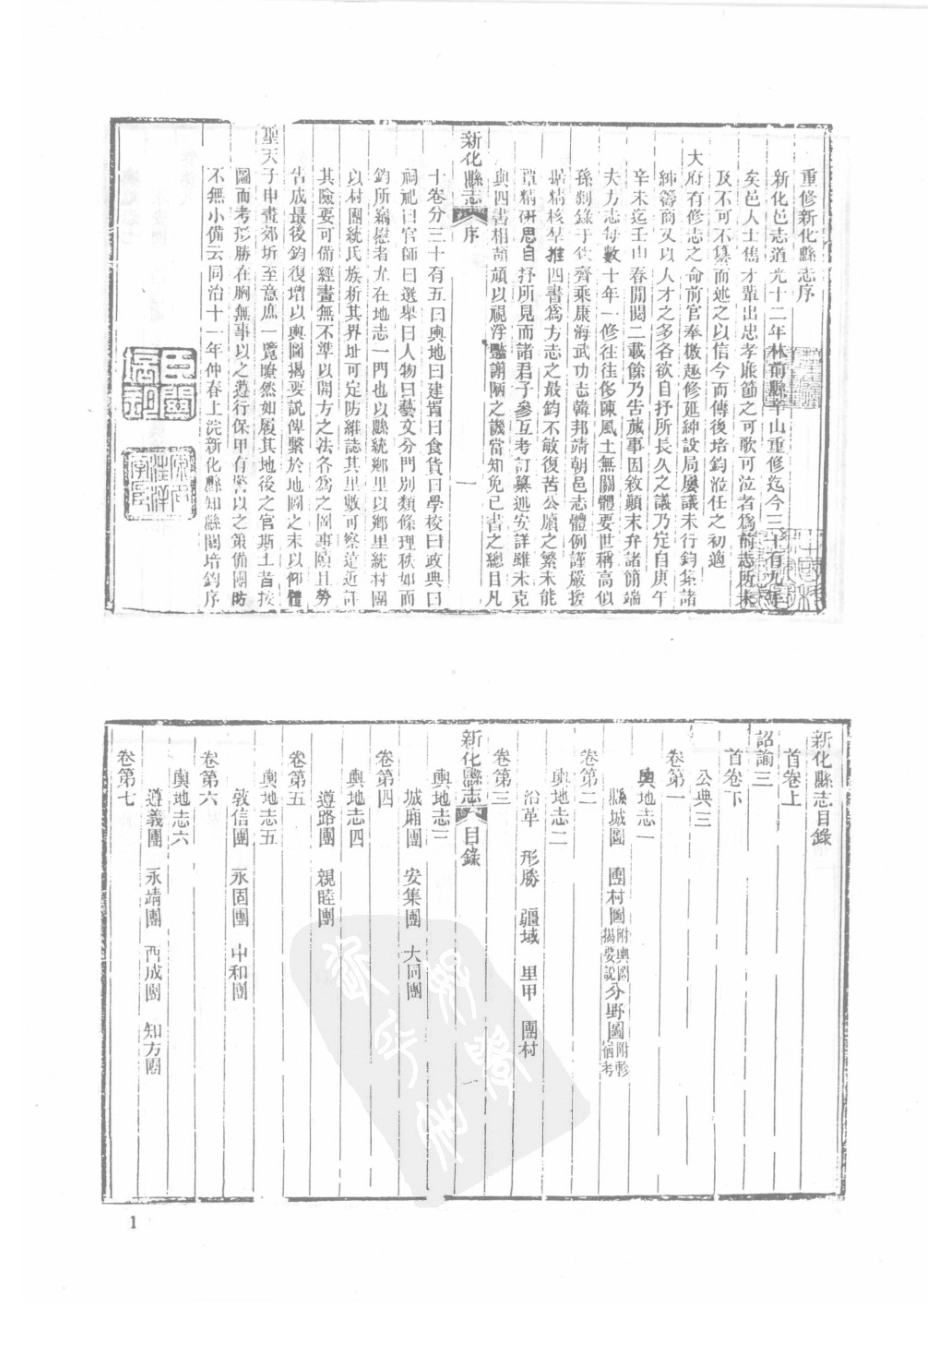 重修新化縣志序
新化邑志道光十二年林前縣辛山重修迄今三十有九年
矣邑人士儁才輩出忠孝廉節之可歌可泣者爲前志所未
及不可不纂而述之以信今而傳後培鈞涖任之初適
大府有修志之命前官奉檄趣修延紳設局屢議未行鈞集諸
紳籌商又以人才之多各欲自抒所長久之議乃定自庚午
辛未迄壬申春閱二載餘乃告蕆事因敘顛末弁諸簡端
夫方志每數十年一修往往侈陳風土無關體要世稱高似
孫剡錄于欽齊乘康海武功志韓邦靖朝邑志體例謹嚴援
據精核羣推四書爲方志之最鈞不敏復苦公牘之繁未能
覃精研思自抒所見而諸君子參互考訂纂述安詳雖未克
與四書相頡頏以視浮豔謭陋之譏當知免已書之總目凡
新化縣志 序 一
十卷分三十有五曰輿地曰建置曰食貨曰學校曰政典曰
祠祀曰官師曰選舉曰人物曰藝文分門別類條理秩如而
鈞所竊慰者尤在地志一門也以縣統鄉里以鄉里統村團
以村團統氏族析其界址可定防維誌其里數可察遠近
其險要可備經畫無不準以開方之法各爲之圖事
告成最後鈞復增以輿圖揭要說俾繫於地圖之末以仰體
聖天子申畫郊圻至意庶一覽瞭然如履其地後之官斯土者按
圖而考形勝在胸無事以之遵行保甲有警以之策備團防
不無小備云同治十一年仲春上浣新化縣知縣關培鈞序
新化縣志目錄
首卷上
詔諭三
首卷下
公典三
卷第一
輿地志一
縣城圖 團村圖附輿圖揭要說 分野圖附軫宿考
卷第二
輿地志二
沿革 形勝 疆域 里甲 團村
卷第三
新化縣志 目錄 一
輿地志三
城廂團 安集團 大同團
卷第四
輿地志四
遵路團 親睦團
卷第五
輿地志五
敦信團 永固團 中和團
卷第六
輿地志六
遵義團 永靖團 西成團 知方團
卷第七
1